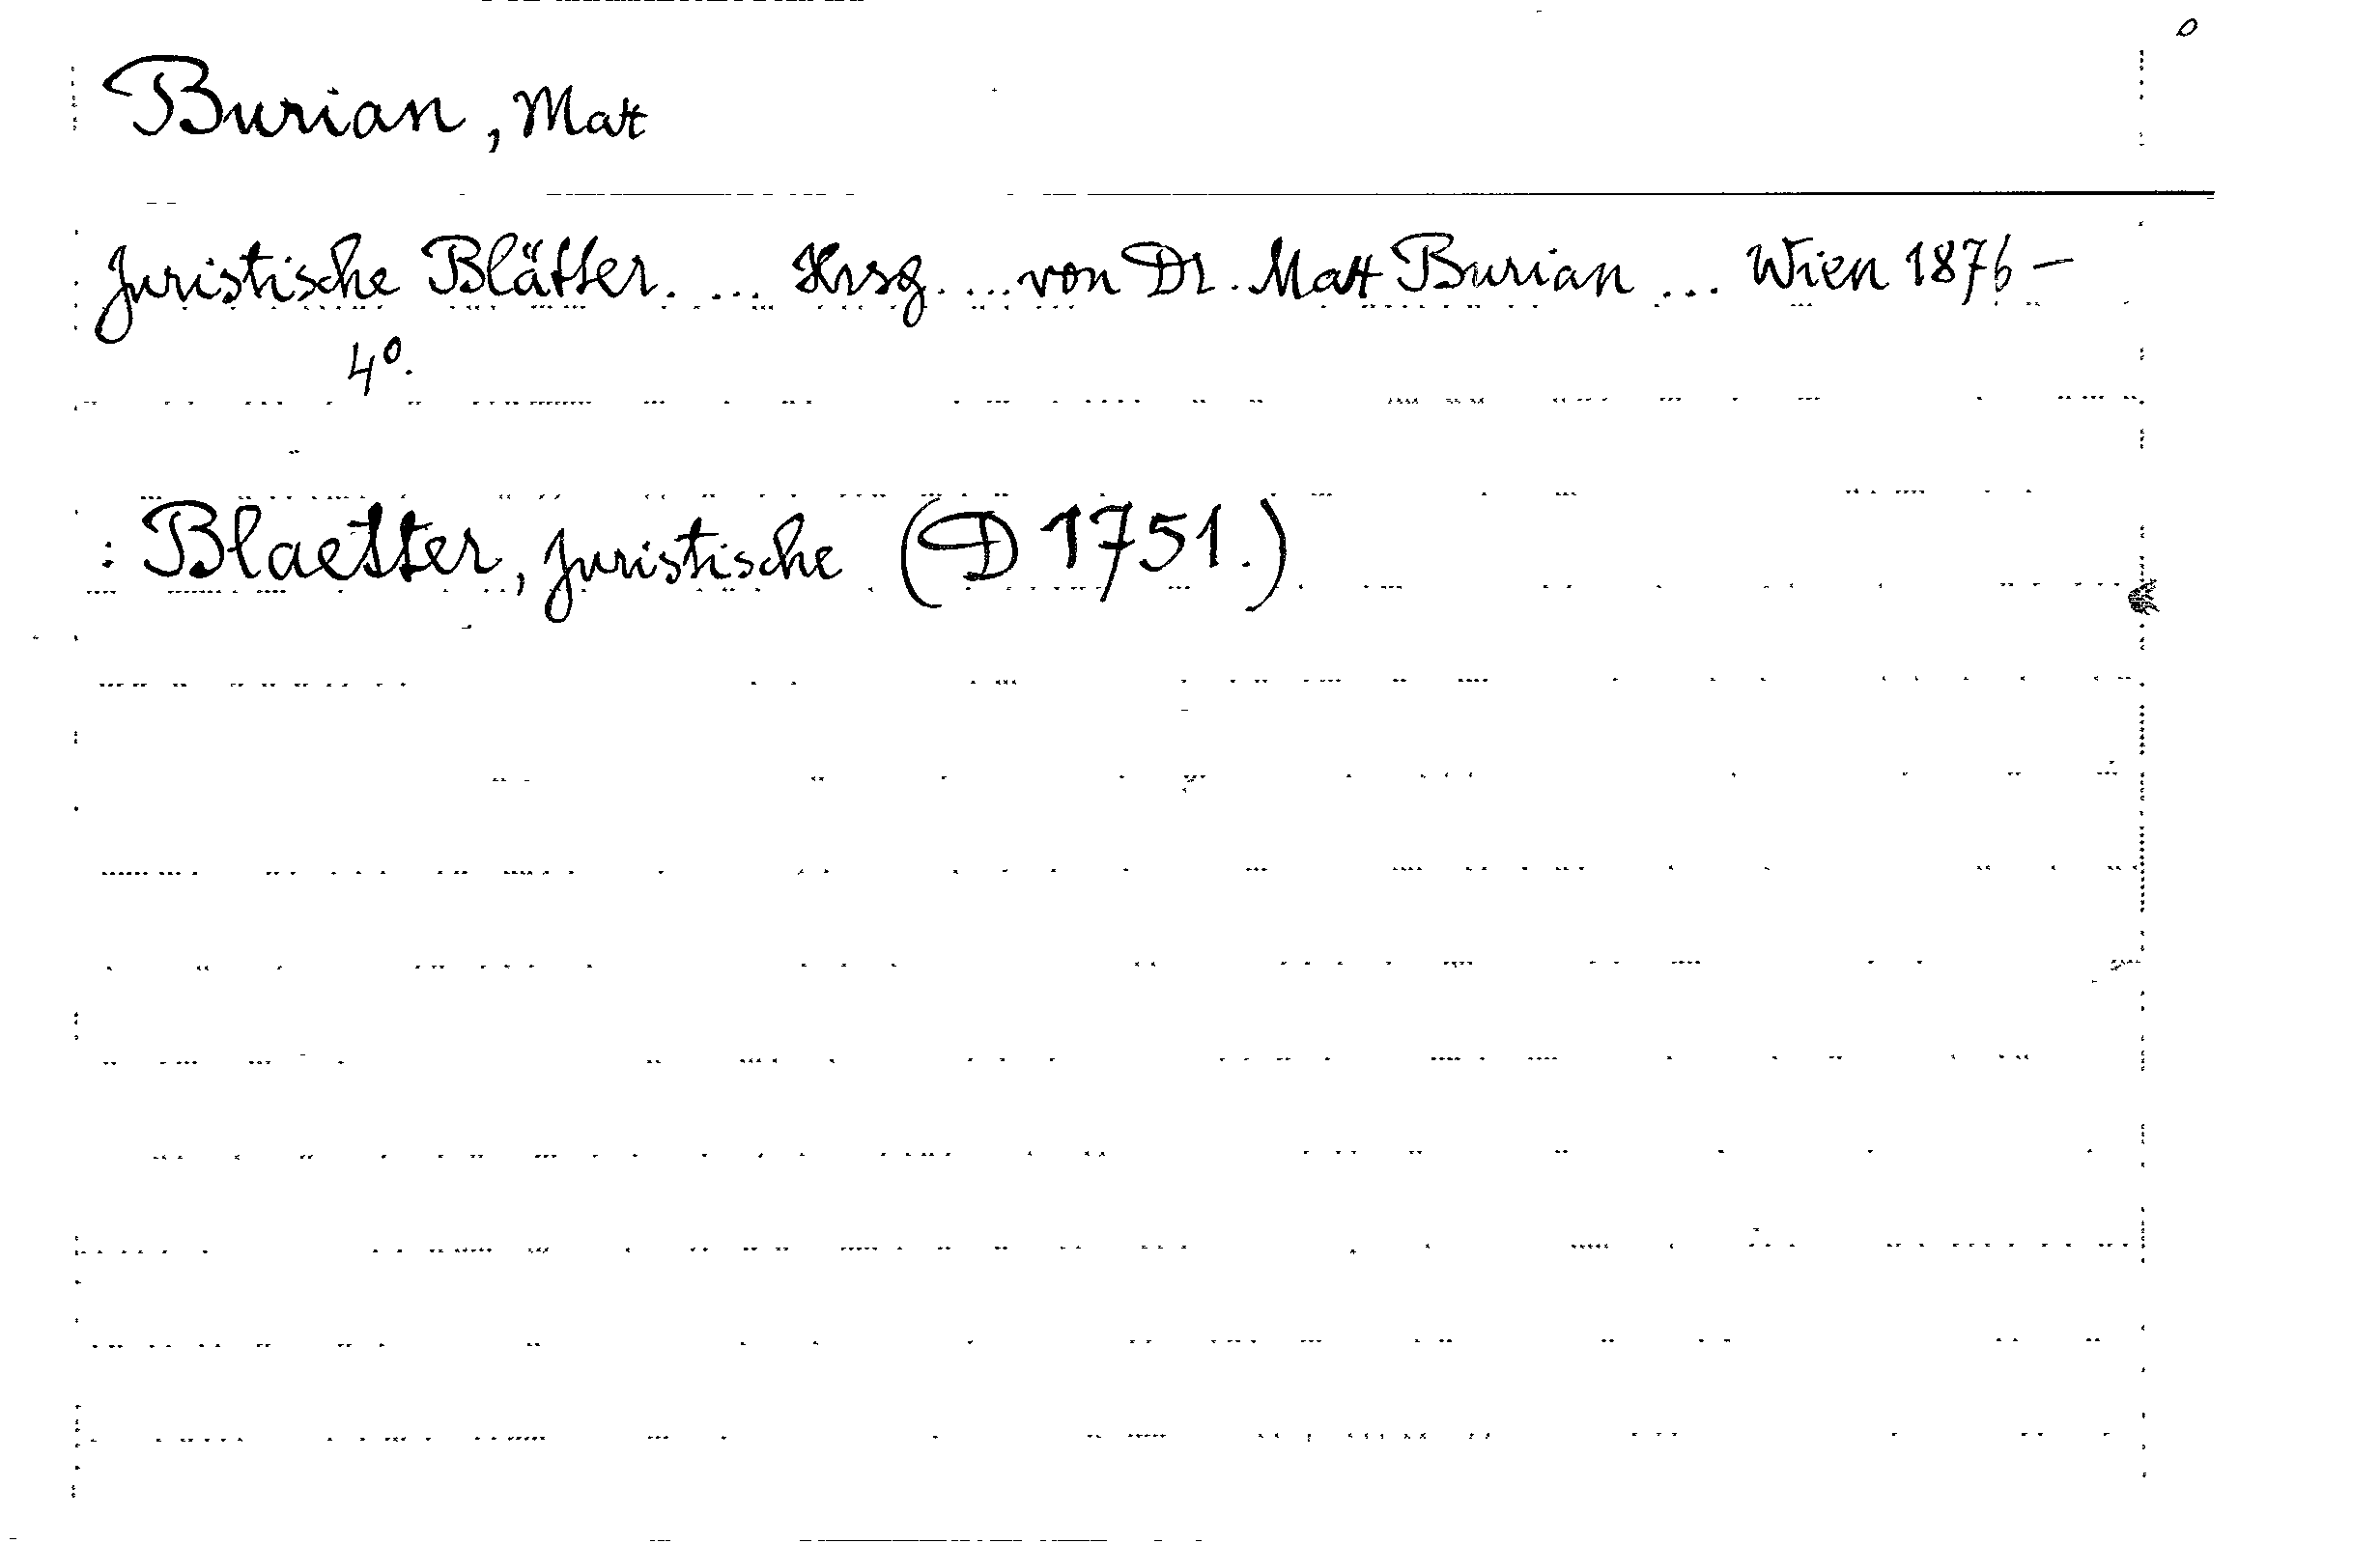 Burian, Matt
Juristische Blätter. ... Hrsg. ... von Dr. Matt Burian ... Wien 1876 –
4°.
: Blaetter, juristische (D 1751.)